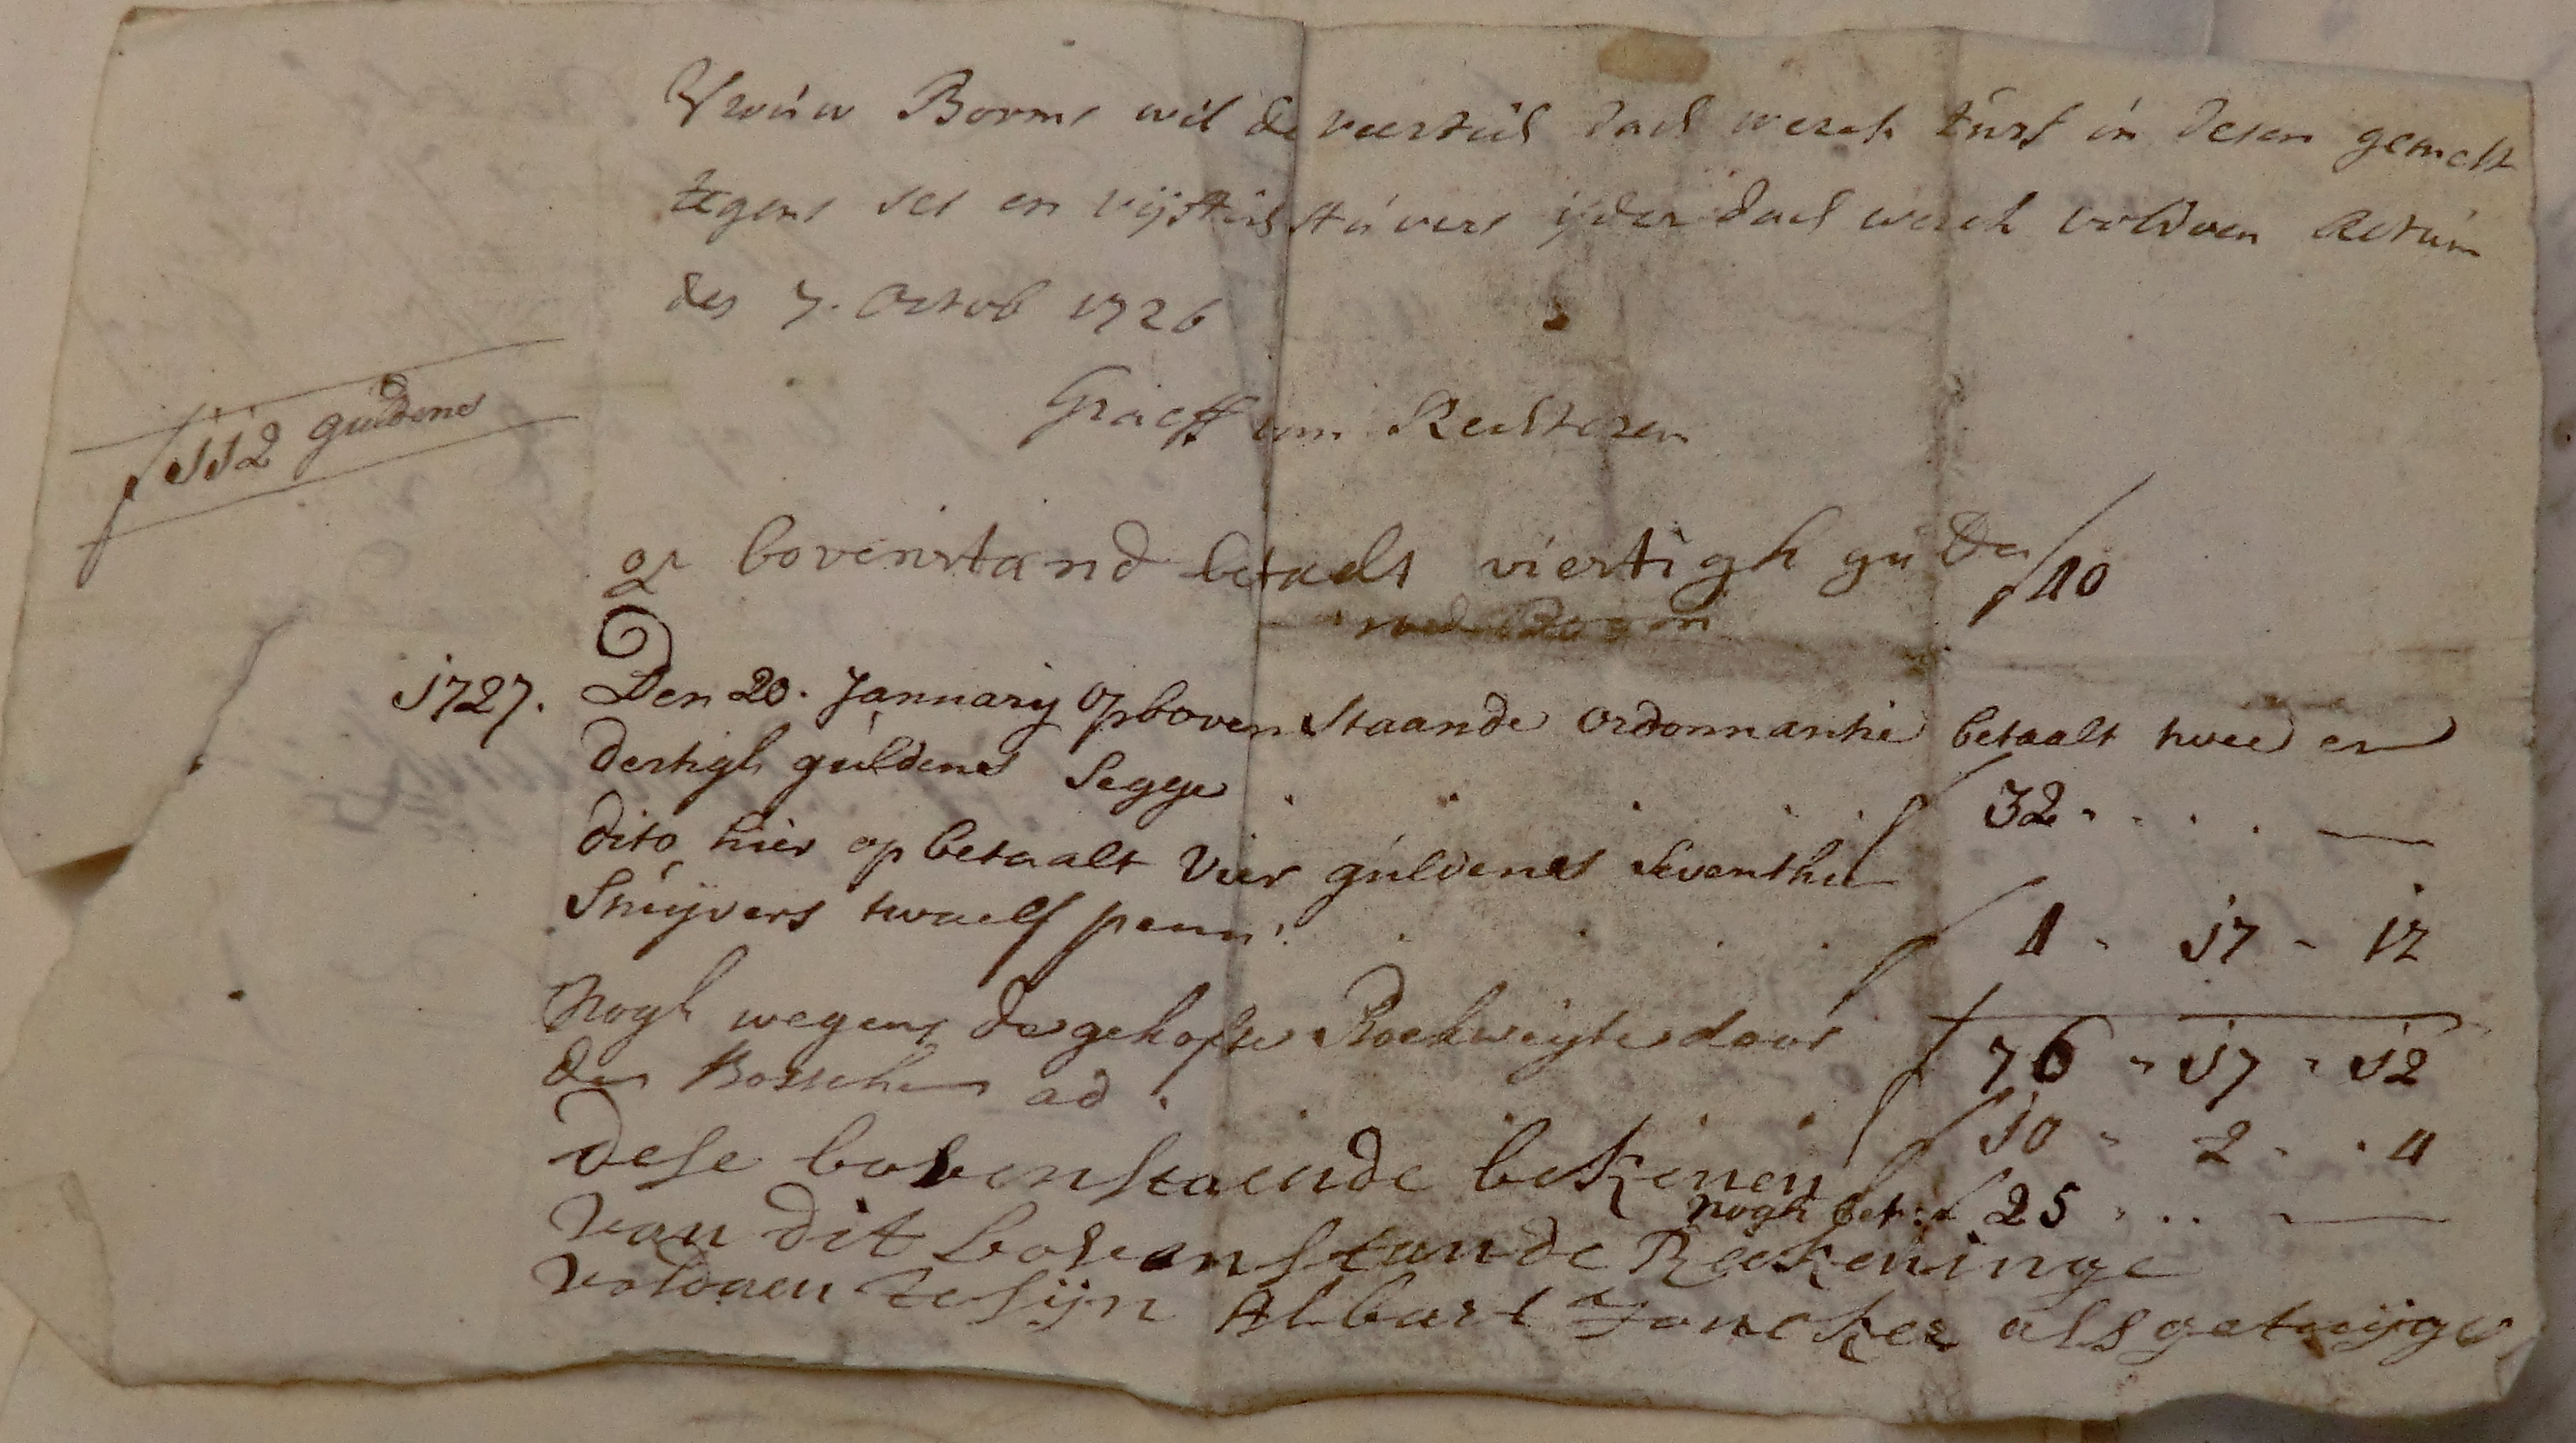 Vrúw Borms wil de veertich dach werck túrf in desen gemelt
tegens ses en vijftich stúvers ijder dach werck voldoen Actúm
des 7. Octob 1726
Graeff van Rechteren
f 112 guldens
op bovenstand betaelt viertigh gulden f 40
1727. Den 20. January op boven staande ordonnantie betaalt twee en
dertigh gúldens Segge . . . . f 32 - . . . —
dito hier op betaalt Vier gúldens Seventhien
Stúijvers twaelf penn: . . . . f 4 - 17 - 12
f 76 - 17 - 12
Nogh wegens de gekofte Boekweijte door
den Bosscher ad . . . . f 10 - 2 - 4
nogh bet: f 25 - . . —
dese bovenstaende bekenen
van dit bovenstande Reekeninge
voldaen te sijn Albart Joncker als getuijge